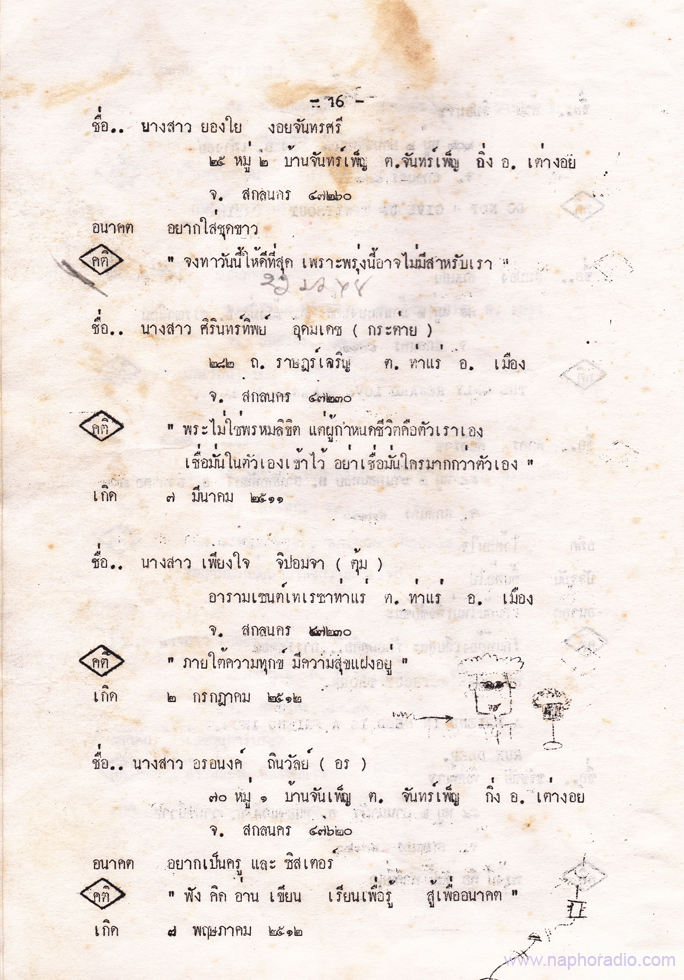 - 16 -
ชื่อ.. นางสาว ยองใย งอยจันทรศรี
๒๕ หมู่ ๒ บ้านจันทร์เพ็ญ ต.จันทร์เพ็ญ กิ่ง อ. เต่างอย
จ. สกลนคร ๔๗๒๖๐
อนาคต อยากใส่ชุดขาว
คติ " จงทำวันนี้ให้ดีที่สุด เพราะพรุ่งนี้อาจไม่มีสำหรับเรา "
ชื่อ.. นางสาว ศิรินทร์ทิพย์ อุดมเดช ( กระต่าย )
๒๘๒ ถ. ราษฎร์เจริญ ต. ท่าแร่ อ. เมือง
จ. สกลนคร ๔๗๒๓๐
คติ " พระไม่ใช่พรหมลิขิต แต่ผู้กำหนดชีวิตคือตัวเราเอง
เชื่อมั่นในตัวเองเข้าไว้ อย่าเชื่อมั่นใครมากกว่าตัวเอง "
เกิด ๗ มีนาคม ๒๕๑๑
ชื่อ.. นางสาว เพียงใจ จิปอมจา ( ตุ้ม )
อารามเซนต์เทเรซาท่าแร่ ต. ท่าแร่ อ. เมือง
จ. สกลนคร ๔๗๒๓๐
คติ " ภายใต้ความทุกข์ มีความสุขแฝงอยู่ "
เกิด ๒ กรกฎาคม ๒๕๑๒
ชื่อ.. นางสาว อรอนงค์ ถินวัลย์ ( อร )
๗๐ หมู่ ๑ บ้านจันเพ็ญ ต. จันทร์เพ็ญ กิ่ง อ. เต่างอย
จ. สกลนคร ๔๗๖๒๐
อนาคต อยากเป็นครู และ ซิสเตอร์
คติ " ฟัง คิด อ่าน เขียน เรียนเพื่อรู้ สู้เพื่ออนาคต "
เกิด ๘ พฤษภาคม ๒๕๑๒
www.naphoradio.com